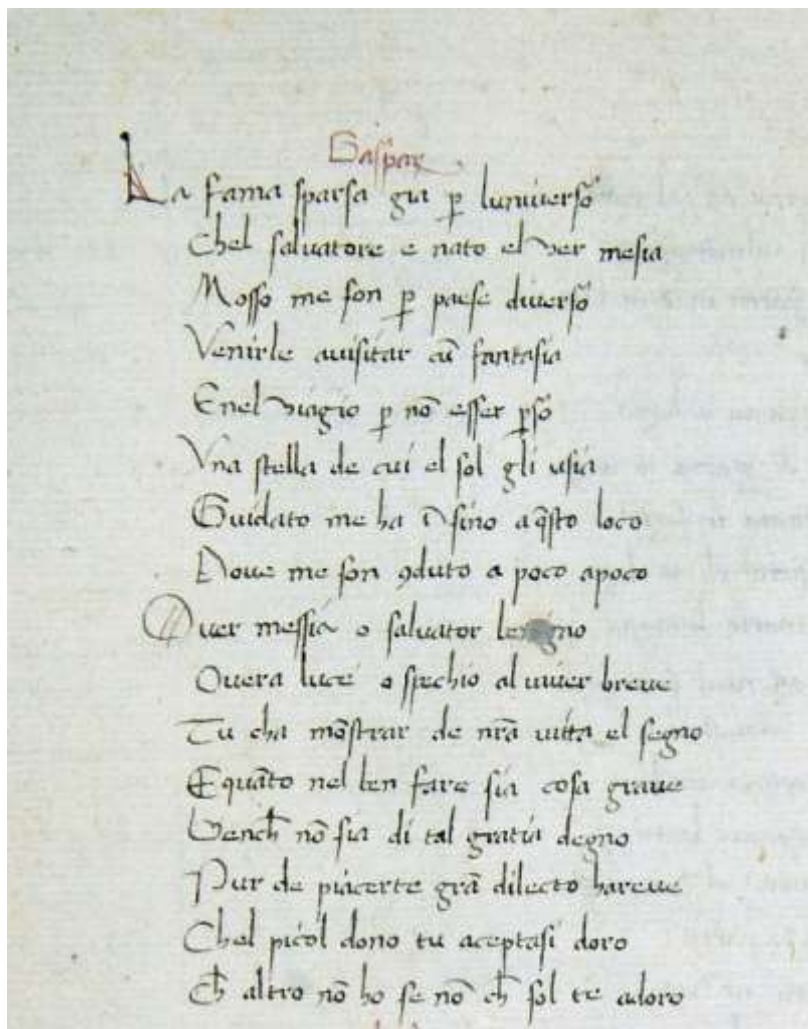 Gaspar
La fama sparsa gia ꝑ luniuerso
Chel salvatore e nato el ver mesia
Mosso me son ꝑ paese diverso
Venirle auisitar cū fantasia
Enel viagio ꝑ nō esser ꝑso
Vna stella de cui el sol gli usia
Guidato me ha ī sino aq̄sto loco
Doue me son ꝯduto a poco apoco
O uer messia o salvator benigno
O uera luce o spechio al uiuer breue
Tu cha mōstrar de nr̄a uitta el segno
E quāto nel ben fare sia cosa graue
Bench̄ nō sia di tal gratia degno
Pur de piacerte grā dilecto hareue
Chel picol dono tu aceptasi doro
Ch̄ altro nō ho se nō ch̄ sol te adoro